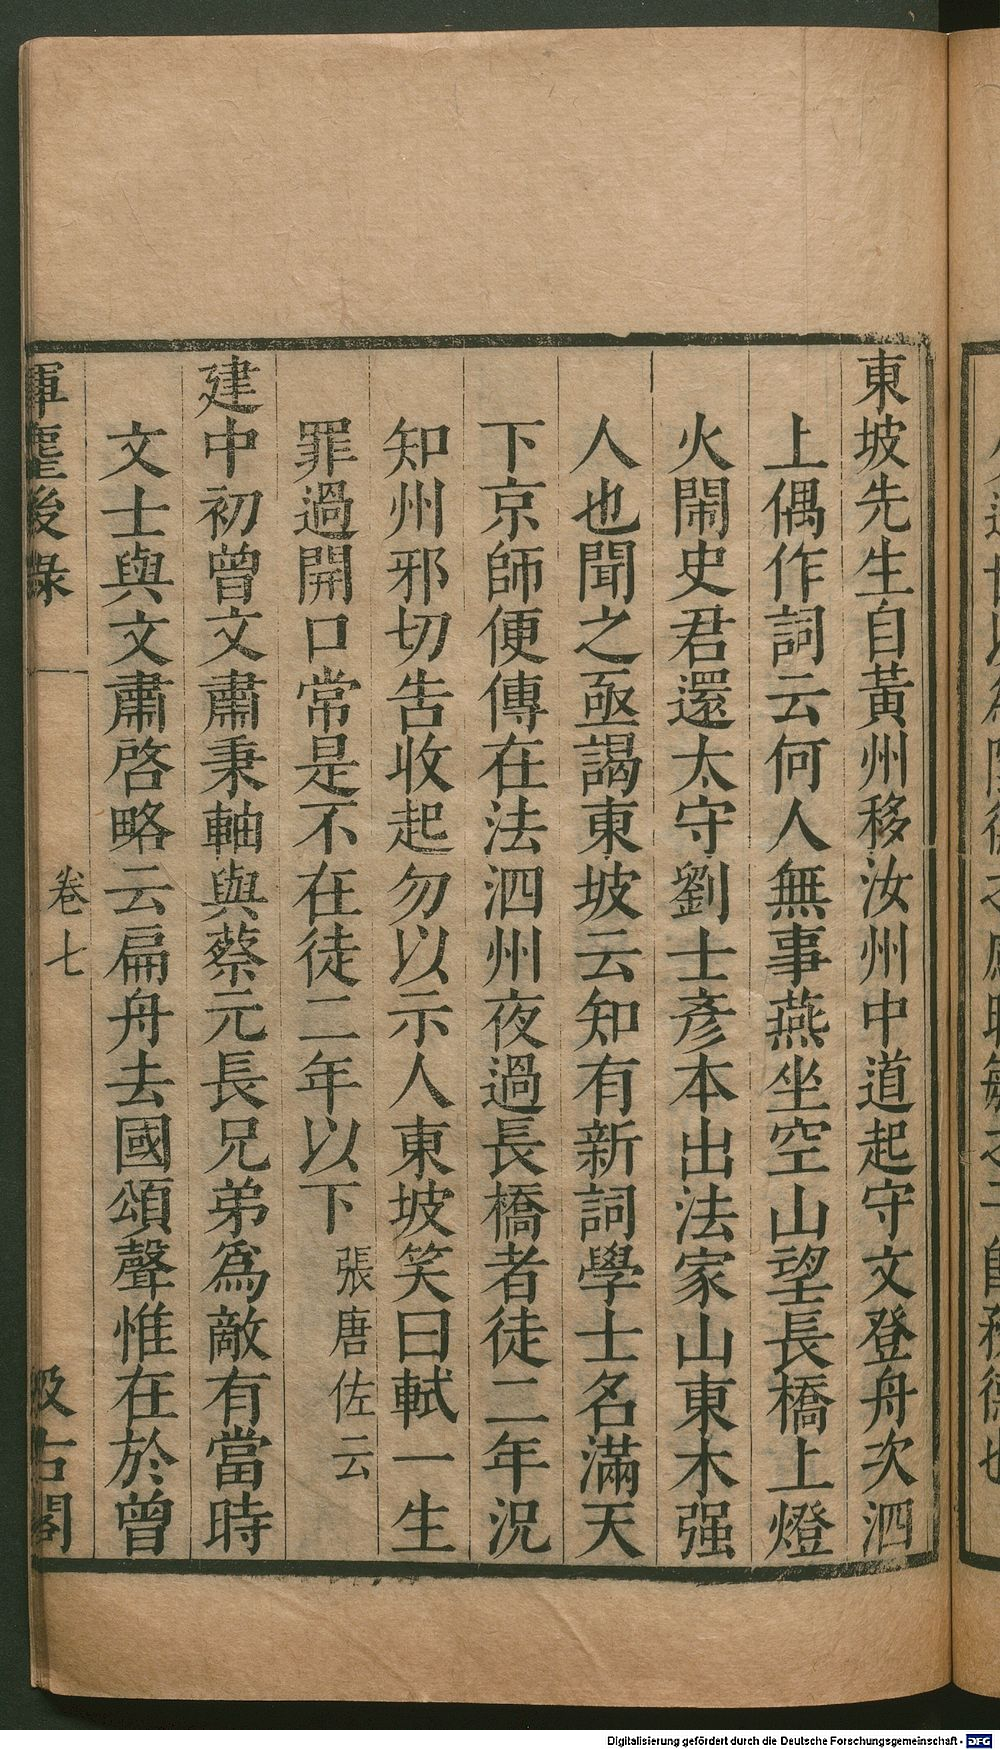 東坡先生自黃州移汝州中道起守文登舟次泗
上偶作詞云何人無事燕坐空山望長橋上燈
火鬧史君還太守劉士彥本出法家山東木强
人也聞之亟謁東坡云知有新詞學士名滿天
下京師便傳在法泗州夜過長橋者徒二年況
知州邪切告收起勿以示人東坡笑曰軾一生
罪過開口常是不在徒二年以下張唐佐云
建中初曾文肅秉軸與蔡元長兄弟爲敵有當時
文士與文肅啓略云扁舟去國頌聲惟在於曾
揮麈後錄 卷七 汲古閣
Digitalisierung gefördert durch die Deutsche Forschungsgemeinschaft - DFG